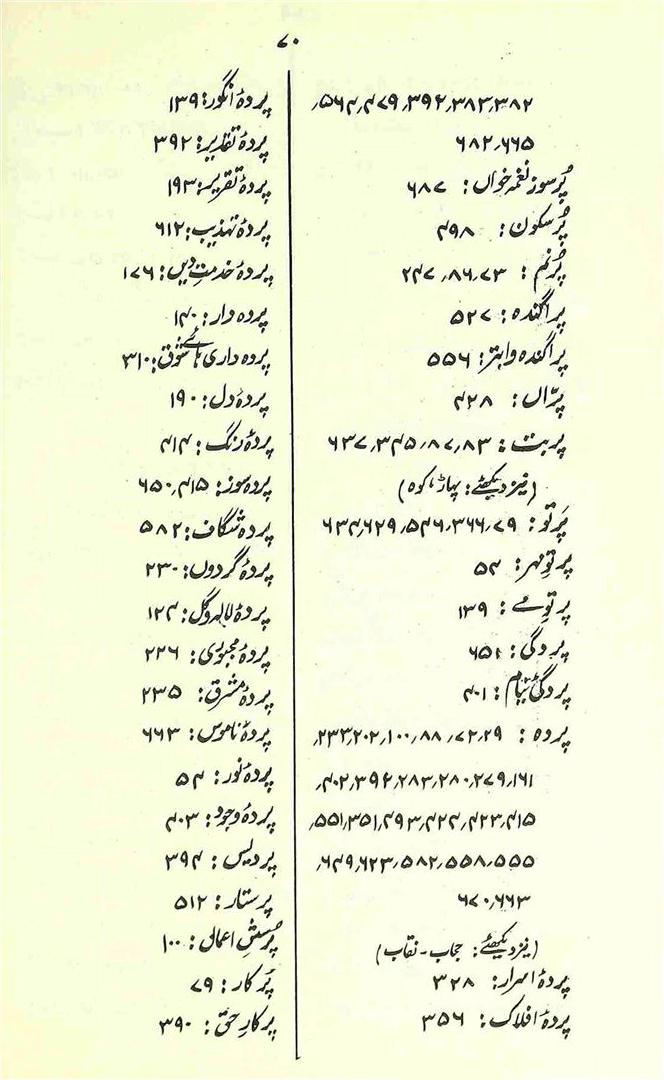 ۷۰
۳۸۲، ۳۸۳، ۳۹۲، ۴۷۹، ۵۶۴،
۶۶۵، ۶۸۲
پُرسوز نغمہ خواں: ۶۸۷
پُرسکون: ۴۹۸
پُرنم: ۷۳، ۸۶، ۲۴۷
پراگندہ: ۵۲۷
پراگندہ و ابتر: ۵۵۶
پرّاں: ۴۲۸
پربت: ۸۳، ۸۷، ۳۴۵، ۶۳۷
(نیز دیکھئے: پہاڑ، کوہ)
پَرتو: ۷۹، ۳۶۶، ۵۴۶، ۶۲۹، ۶۳۴
پرتوِ مہر: ۵۴
پرتوِ مے: ۱۳۹
پردگی: ۶۵۱
پردگئ نیام: ۴۰۱
پردہ: ۲۹، ۷۲، ۸۸، ۱۰۰، ۲۰۲، ۲۳۳،
۱۶۱، ۲۷۹، ۲۸۰، ۲۸۳، ۳۹۲، ۴۰۲،
۴۱۵، ۴۲۳، ۴۲۴، ۴۹۳، ۳۵۱، ۵۵۱،
۵۵۵، ۵۵۸، ۵۸۲، ۶۲۳، ۶۴۹،
۶۶۳، ۶۷۰
(نیز دیکھئے: حجاب - نقاب)
پردۂ اسرار: ۳۲۸
پردۂ افلاک: ۳۵۶
پردۂ انگور: ۱۳۹
پردۂ تقدیر: ۳۹۲
پردۂ تقریر: ۱۹۳
پردۂ تہذیب: ۶۱۲
پردۂ خدمتِ دیں: ۱۷۶
پردہ دار: ۱۴۰
پردہ داری ہائے شوق: ۳۱۰
پردۂ دل: ۱۹۰
پردۂ رنگ: ۴۱۴
پردہ سوز: ۴۱۵، ۶۵۰
پردہ شگاف: ۵۸۲
پردۂ گردوں: ۲۳۰
پردۂ لالہ و گل: ۱۲۴
پردۂ مجبوری: ۲۲۶
پردۂ مشرق: ۲۳۵
پردۂ ناموس: ۶۶۳
پردۂ نور: ۵۴
پردۂ وجود: ۴۰۳
پردیس: ۳۹۴
پرستار: ۵۱۲
پُرسشِ اعمال: ۱۰۰
پُرکار: ۷۹
پرکارِ حق: ۳۹۰